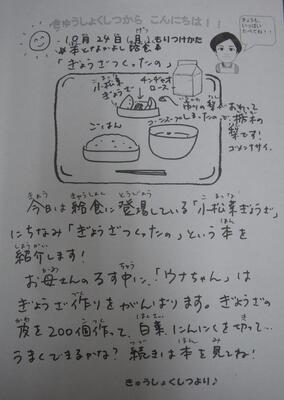 きゅうしょくしつから こんにちは！！
きょうも、
いっぱい
たべてね！！
10月24日（月）、もりつけかた
「ぎょうざつくったの」
小松菜
ぎょうざ
チンジャオ
ロース
ごはん
コーンスープ
栃木の
梨です！
ゴメンナサイ。
今日は給食に登場している「小松菜ぎょうざ」
にちなみ「ぎょうざつくったの」という本を
紹介します！
お母さんのるす中に、「ウナちゃん」は
ぎょうざ作りをがんばります。ぎょうざの
皮を200個作って、白菜、にんにくを切って…
うまくできるかな？続きは本を見てね！
きゅうしょくしつより♪